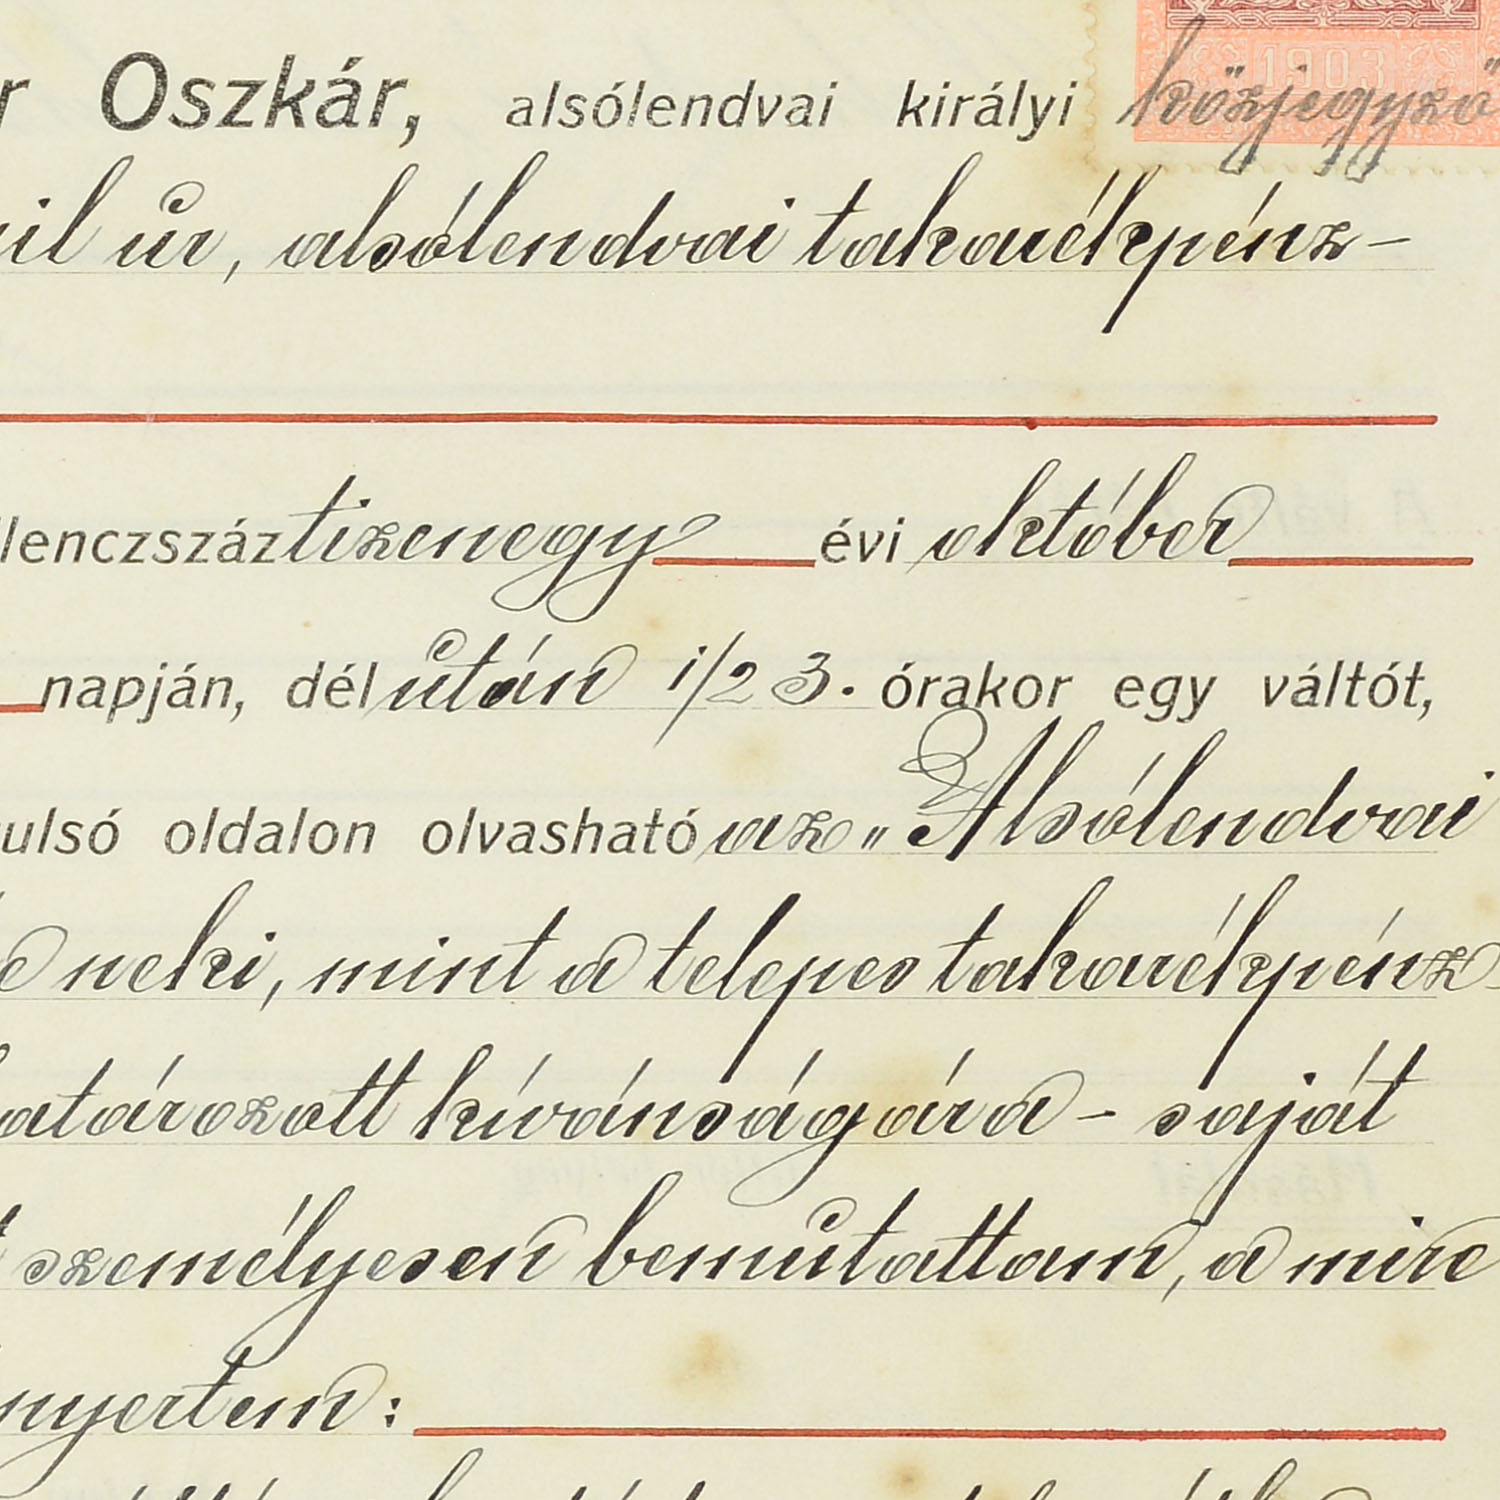 r Oszkár, alsólendvai királyi közjegyző
1903
il úr, alsólendvai takarékpénz-
lenczszáz tizenegy évi október
napján, dél után 1/2 3. órakor egy váltót,
ulsó oldalon olvasható az „Alsólendvai
e neki, mint a telepes takarékpénz
atározott kívánságára - saját
személyesen bemutattam, a mire
nyertem: